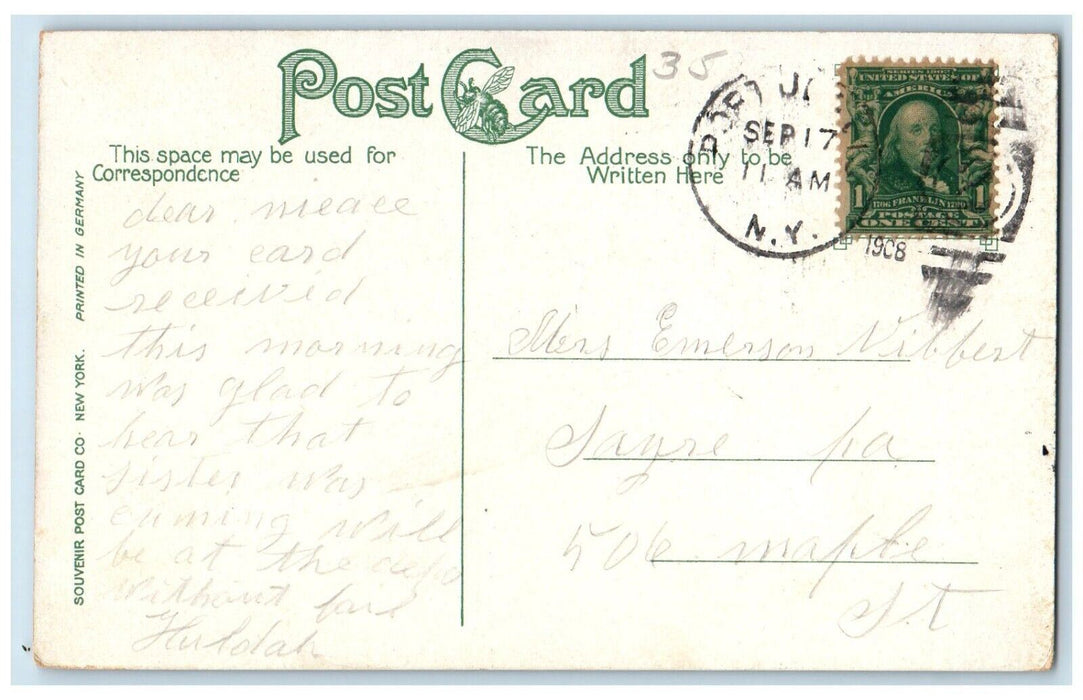 Post Card
35
This space may be used for
Correspondence
The Address only to be
Written Here
PORT J
SEP 17
11 AM
N.Y.
1908
SERIES 1902
UNITED STATES OF
AMERICA
1 1
1706 FRANKLIN 1790
POSTAGE
ONE CENT
SOUVENIR POST CARD CO. NEW YORK. PRINTED IN GERMANY
dear nieace
your card
received
this morning
was glad to
hear that
sister was
cuming will
be at the depo
without fail
Huldah
Mrs Emerson Vibbert
Sayre pa
506 maple
St